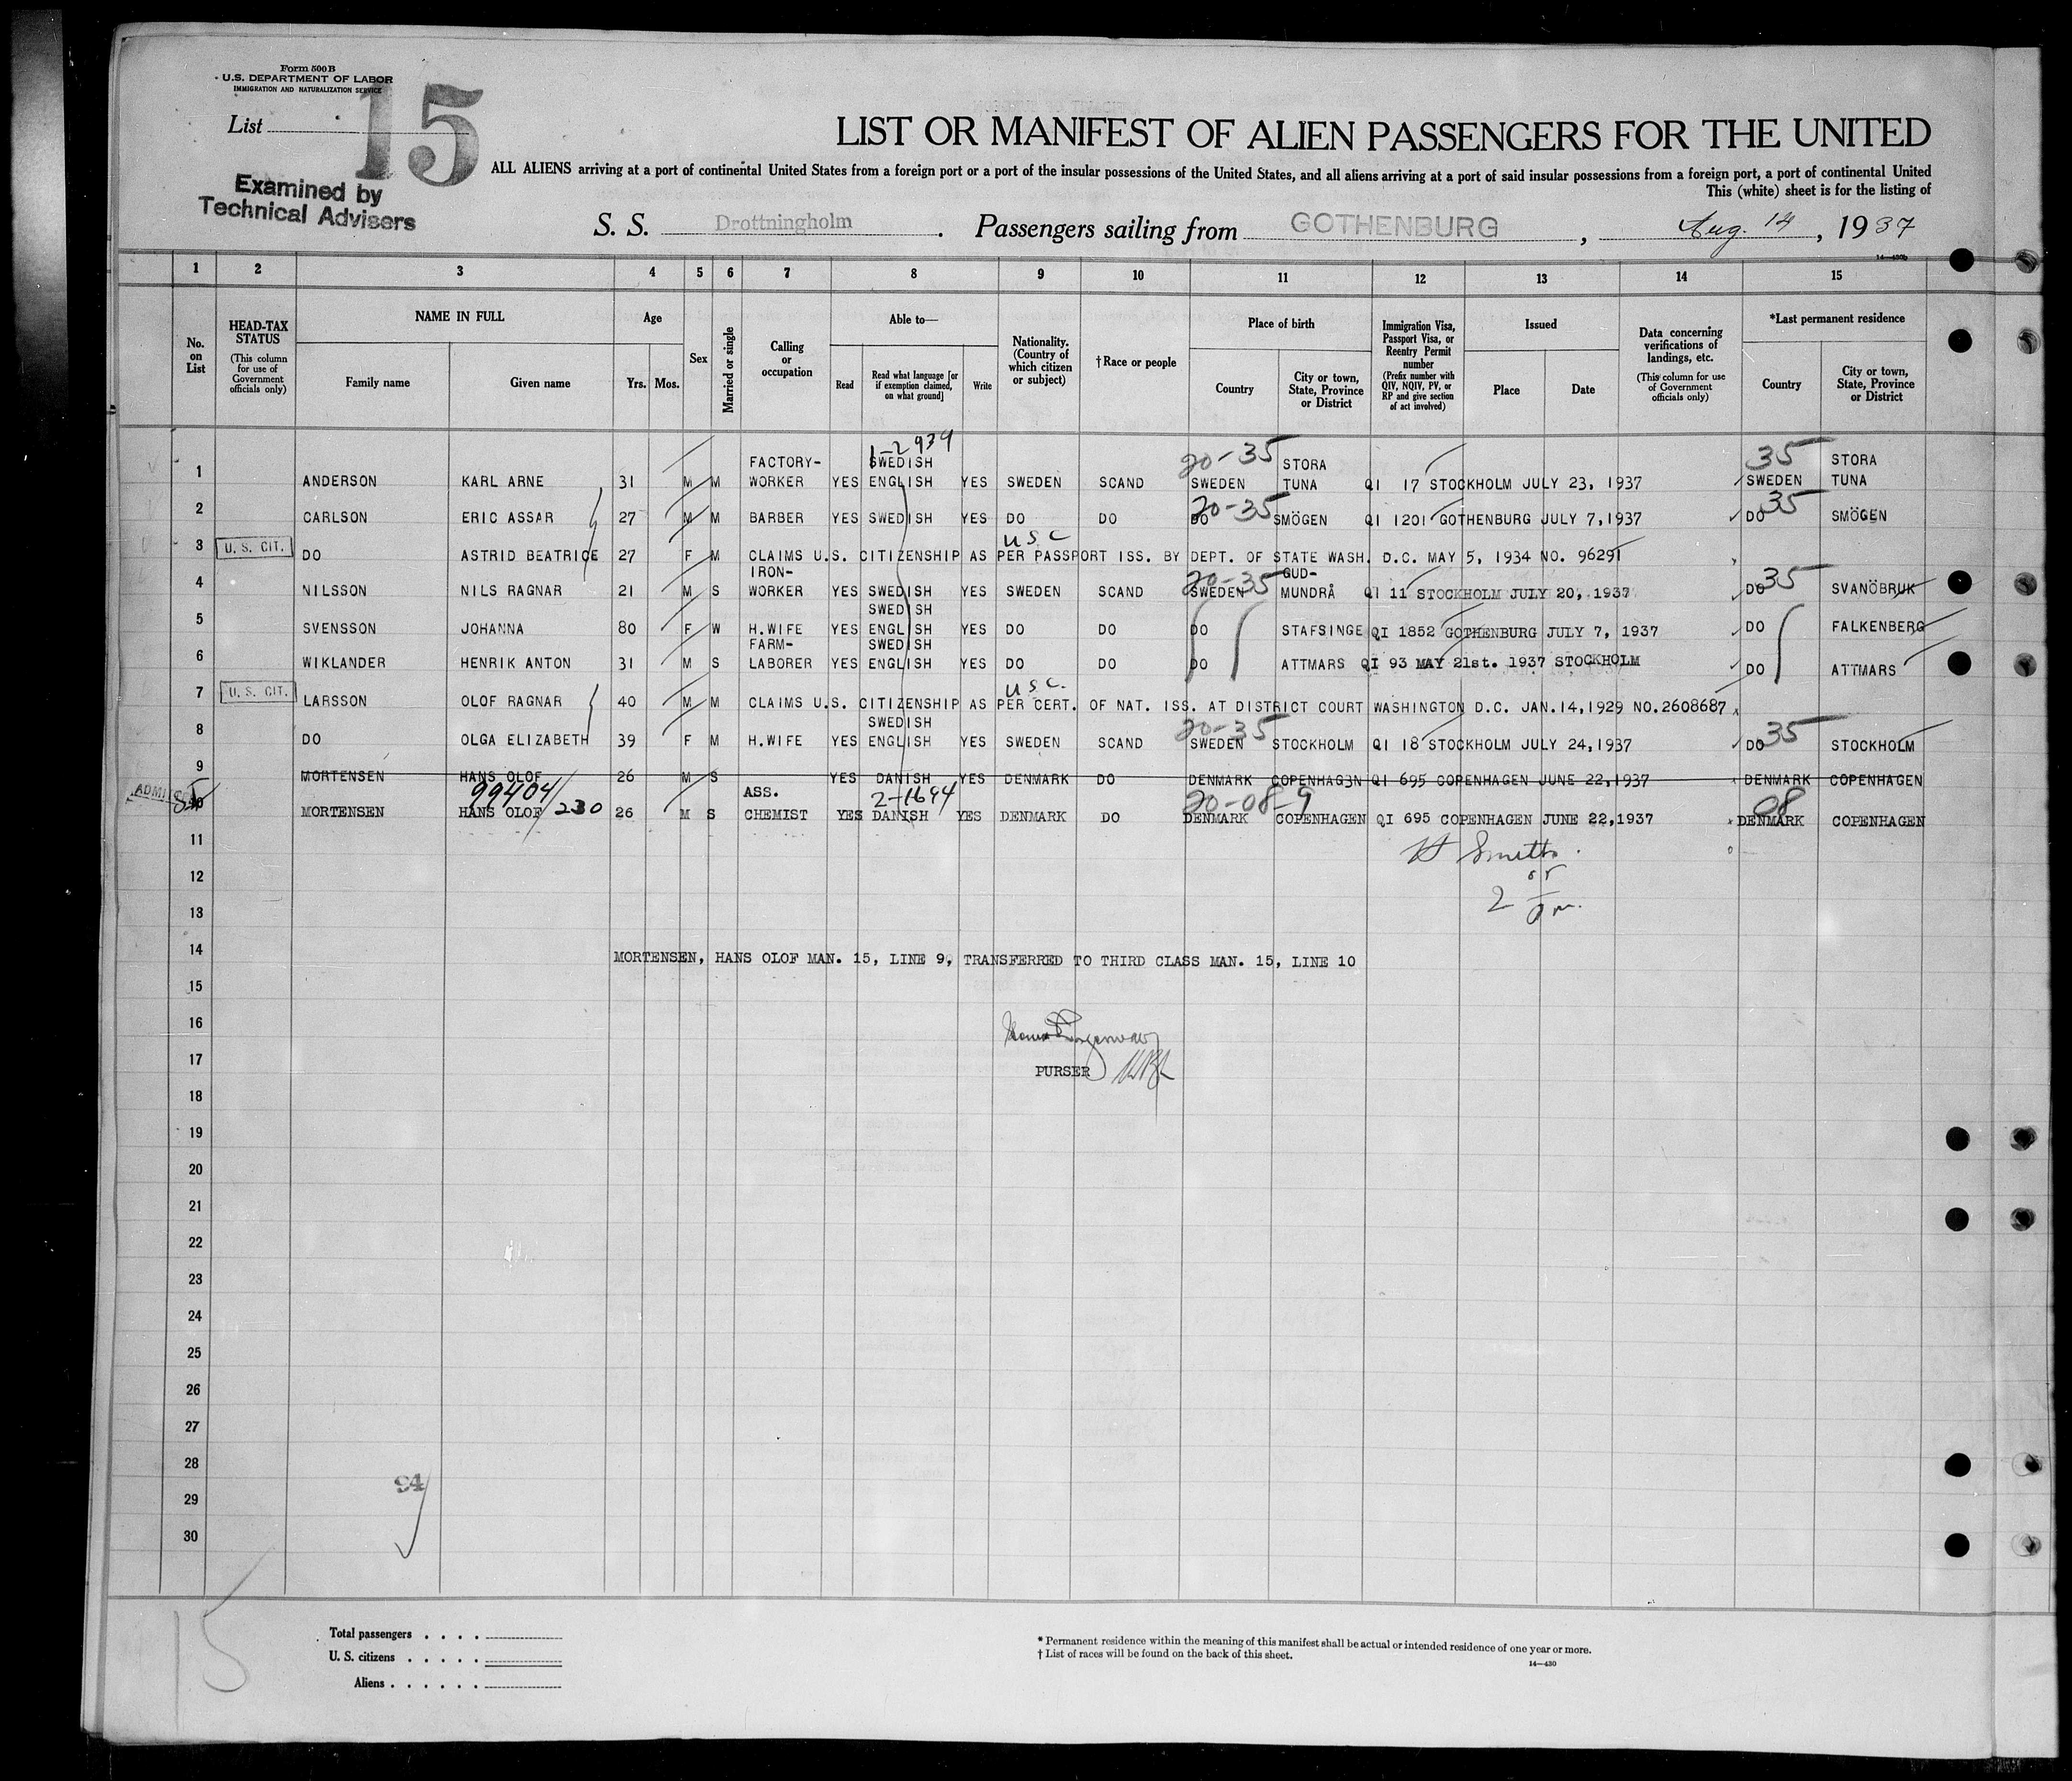 Form 500 B
U.S. DEPARTMENT OF LABOR
IMMIGRATION AND NATURALIZATION SERVICE
List 15
Examined by
Technical Advisers
LIST OR MANIFEST OF ALIEN PASSENGERS FOR THE UNITED
ALL ALIENS arriving at a port of continental United States from a foreign port or a port of the insular possessions of the United States, and all aliens arriving at a port of said insular possessions from a foreign port, a port of continental United
This (white) sheet is for the listing of
S. S. Drottningholm . Passengers sailing from GOTHENBURG , Aug. 14 , 1937
14—430b
1 2 3 4 5 6 7 8 9 10 11 12 13 14 15
No. on List
HEAD-TAX STATUS (This column for use of Government officials only)
NAME IN FULL
Family name Given name
Age
Yrs. Mos.
Sex
Married or single
Calling or occupation
Able to—
Read Read what language [or if exemption claimed, on what ground] Write
Nationality. (Country of which citizen or subject)
† Race or people
Place of birth
Country City or town, State, Province or District
Immigration Visa, Passport Visa, or Reentry Permit number (Prefix number with QIV, NQIV, PV, or RP and give section of act involved)
Issued
Place Date
Data concerning verifications of landings, etc. (This column for use of Government officials only)
*Last permanent residence
Country City or town, State, Province or District
1-2939
FACTORY- SWEDISH 20-35 STORA 35 STORA
1 ANDERSON KARL ARNE 31 M M WORKER YES ENGLISH YES SWEDEN SCAND SWEDEN TUNA QI 17 STOCKHOLM JULY 23, 1937 SWEDEN TUNA
20-35 35
2 CARLSON ERIC ASSAR 27 M M BARBER YES SWEDISH YES DO DO DO SMÖGEN QI 1201 GOTHENBURG JULY 7,1937 DO SMÖGEN
USC
3 U. S. CIT. DO ASTRID BEATRICE 27 F M CLAIMS U.S. CITIZENSHIP AS PER PASSPORT ISS. BY DEPT. OF STATE WASH. D.C. MAY 5, 1934 NO. 96291
IRON- 20-35 GUD- 35
4 NILSSON NILS RAGNAR 21 M S WORKER YES SWEDISH YES SWEDEN SCAND SWEDEN MUNDRÅ QI 11 STOCKHOLM JULY 20, 1937 DO SVANÖBRUK
SWEDISH
5 SVENSSON JOHANNA 80 F W H.WIFE YES ENGLISH YES DO DO DO STAFSINGE QI 1852 GOTHENBURG JULY 7, 1937 DO FALKENBERG
FARM- SWEDISH
6 WIKLANDER HENRIK ANTON 31 M S LABORER YES ENGLISH YES DO DO DO ATTMARS QI 93 MAY 21st. 1937 STOCKHOLM DO ATTMARS
USC.
7 U. S. CIT. LARSSON OLOF RAGNAR 40 M M CLAIMS U.S. CITIZENSHIP AS PER CERT. OF NAT. ISS. AT DISTRICT COURT WASHINGTON D.C. JAN.14,1929 NO.2608687
SWEDISH 20-35 35
8 DO OLGA ELIZABETH 39 F M H.WIFE YES ENGLISH YES SWEDEN SCAND SWEDEN STOCKHOLM QI 18 STOCKHOLM JULY 24,1937 DO STOCKHOLM
9 MORTENSEN HANS OLOF 26 M S YES DANISH YES DENMARK DO DENMARK COPENHAGEN QI 695 COPENHAGEN JUNE 22,1937 DENMARK COPENHAGEN
ADMITTED 99404/230 ASS. 2-1694 20-08-9 08
10 MORTENSEN HANS OLOF 26 M S CHEMIST YES DANISH YES DENMARK DO DENMARK COPENHAGEN QI 695 COPENHAGEN JUNE 22,1937 DENMARK COPENHAGEN
11
12
13
14 MORTENSEN, HANS OLOF MAN. 15, LINE 9, TRANSFERRED TO THIRD CLASS MAN. 15, LINE 10
15
16
17 PURSER
18
19
20
21
22
23
24
25
26
27
28
94
29
30
15
Total passengers . . . .
U. S. citizens . . . . .
Aliens . . . . . .
* Permanent residence within the meaning of this manifest shall be actual or intended residence of one year or more.
† List of races will be found on the back of this sheet.
14—430